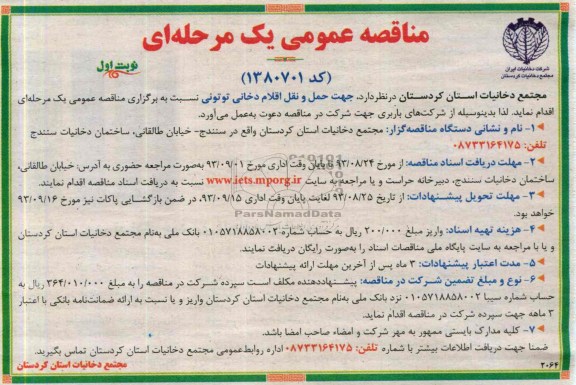 مناقصه عمومی یک مرحله‌ای
شرکت دخانیات ایران
مجتمع دخانیات کردستان
نوبت اول
(کد ۱۳۸۰۷۰۱)
مجتمع دخانیات استان کردستان درنظردارد، جهت حمل و نقل اقلام دخانی توتونی نسبت به برگزاری مناقصه عمومی یک مرحله‌ای
اقدام نماید. لذا بدینوسیله از شرکت‌های باربری جهت شرکت در مناقصه دعوت به‌عمل می‌آورد.
۱- نام و نشانی دستگاه مناقصه‌گزار: مجتمع دخانیات استان کردستان واقع در سنندج- خیابان طالقانی، ساختمان دخانیات سنندج
تلفن: ۰۸۷۳۳۱۶۴۱۷۵
۲- مهلت دریافت اسناد مناقصه: از مورخ ۹۳/۰۸/۲۴ تا پایان وقت اداری مورخ ۹۳/۰۹/۰۱ به‌صورت مراجعه حضوری به آدرس: خیابان طالقانی،
ساختمان دخانیات سنندج، دبیرخانه حراست و یا مراجعه به سایت www.iets.mporg.ir نسبت به دریافت اسناد مناقصه اقدام نمایند.
۳- مهلت تحویل پیشنهادات: از تاریخ ۹۳/۰۸/۲۵ لغایت پایان وقت اداری ۹۳/۰۹/۱۵، در ضمن بازگشایی پاکات نیز مورخ ۹۳/۰۹/۱۶
خواهد بود.
ParsNamadData
۴- هزینه تهیه اسناد: واریز مبلغ ۲۰۰/۰۰۰ ریال به حساب شماره ۰۱۰۵۷۱۸۸۵۸۰۰۲ بانک ملی به‌نام مجتمع دخانیات استان کردستان
و یا با مراجعه به سایت پایگاه ملی مناقصات اسناد را به‌صورت رایگان دریافت نمایند.
۵- مدت اعتبار پیشنهادات: ۳ ماه پس از آخرین مهلت ارائه پیشنهادات
۶- نوع و مبلغ تضمین شرکت در مناقصه: پیشنهاددهنده مکلف است سپرده شرکت در مناقصه را به مبلغ ۳۶۴/۰۱۰/۰۰۰ ریال به
حساب شماره سیبا ۰۱۰۵۷۱۸۸۵۸۰۰۲ نزد بانک ملی به‌نام مجتمع دخانیات استان کردستان واریز و یا نسبت به ارائه ضمانت‌نامه بانکی با اعتبار
۳ ماهه جهت سپرده شرکت در مناقصه اقدام نماید.
۷- کلیه مدارک بایستی ممهور به مهر شرکت و امضاء صاحب امضا باشد.
ضمنا جهت دریافت اطلاعات بیشتر با شماره تلفن: ۰۸۷۳۳۱۶۴۱۷۵ اداره روابط‌عمومی مجتمع دخانیات استان کردستان تماس بگیرید.
۲۰۶۴
مجتمع دخانیات استان کردستان